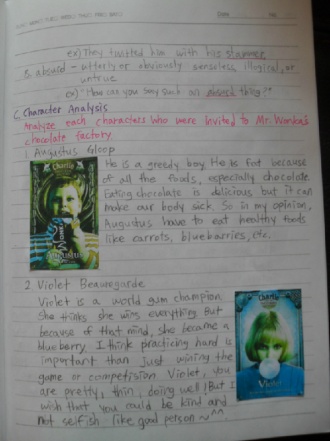 ex) They twitted him with his stammer
5. absurd - utterly or obviously senseless, illogical, or
untrue
ex) "How can you say such an absurd thing?"
C. Character Analysis
Analyze each characters who were invited to Mr. Wonka's
chocolate factory.
Augustus Gloop
He is a greedy boy. He is fat because
of all the foods, especially chocolate.
Eating chocolate is delicious but it can
make our body sick. So in my opinion,
Augustus have to eat healthy foods
like carrots, blueberries, etc.
Charlie
Augustus
2 Violet Beauregarde
Violet is a world gum champion.
She thinks she wins everything. But
because of that mind, she became a
blueberry. I think practicing hard is
important than just wining the
game or competision. Violet, you
are pretty, thin, doing well! But I
wish that you could be kind and
not selfish like good person ~^^
Charlie
Violet